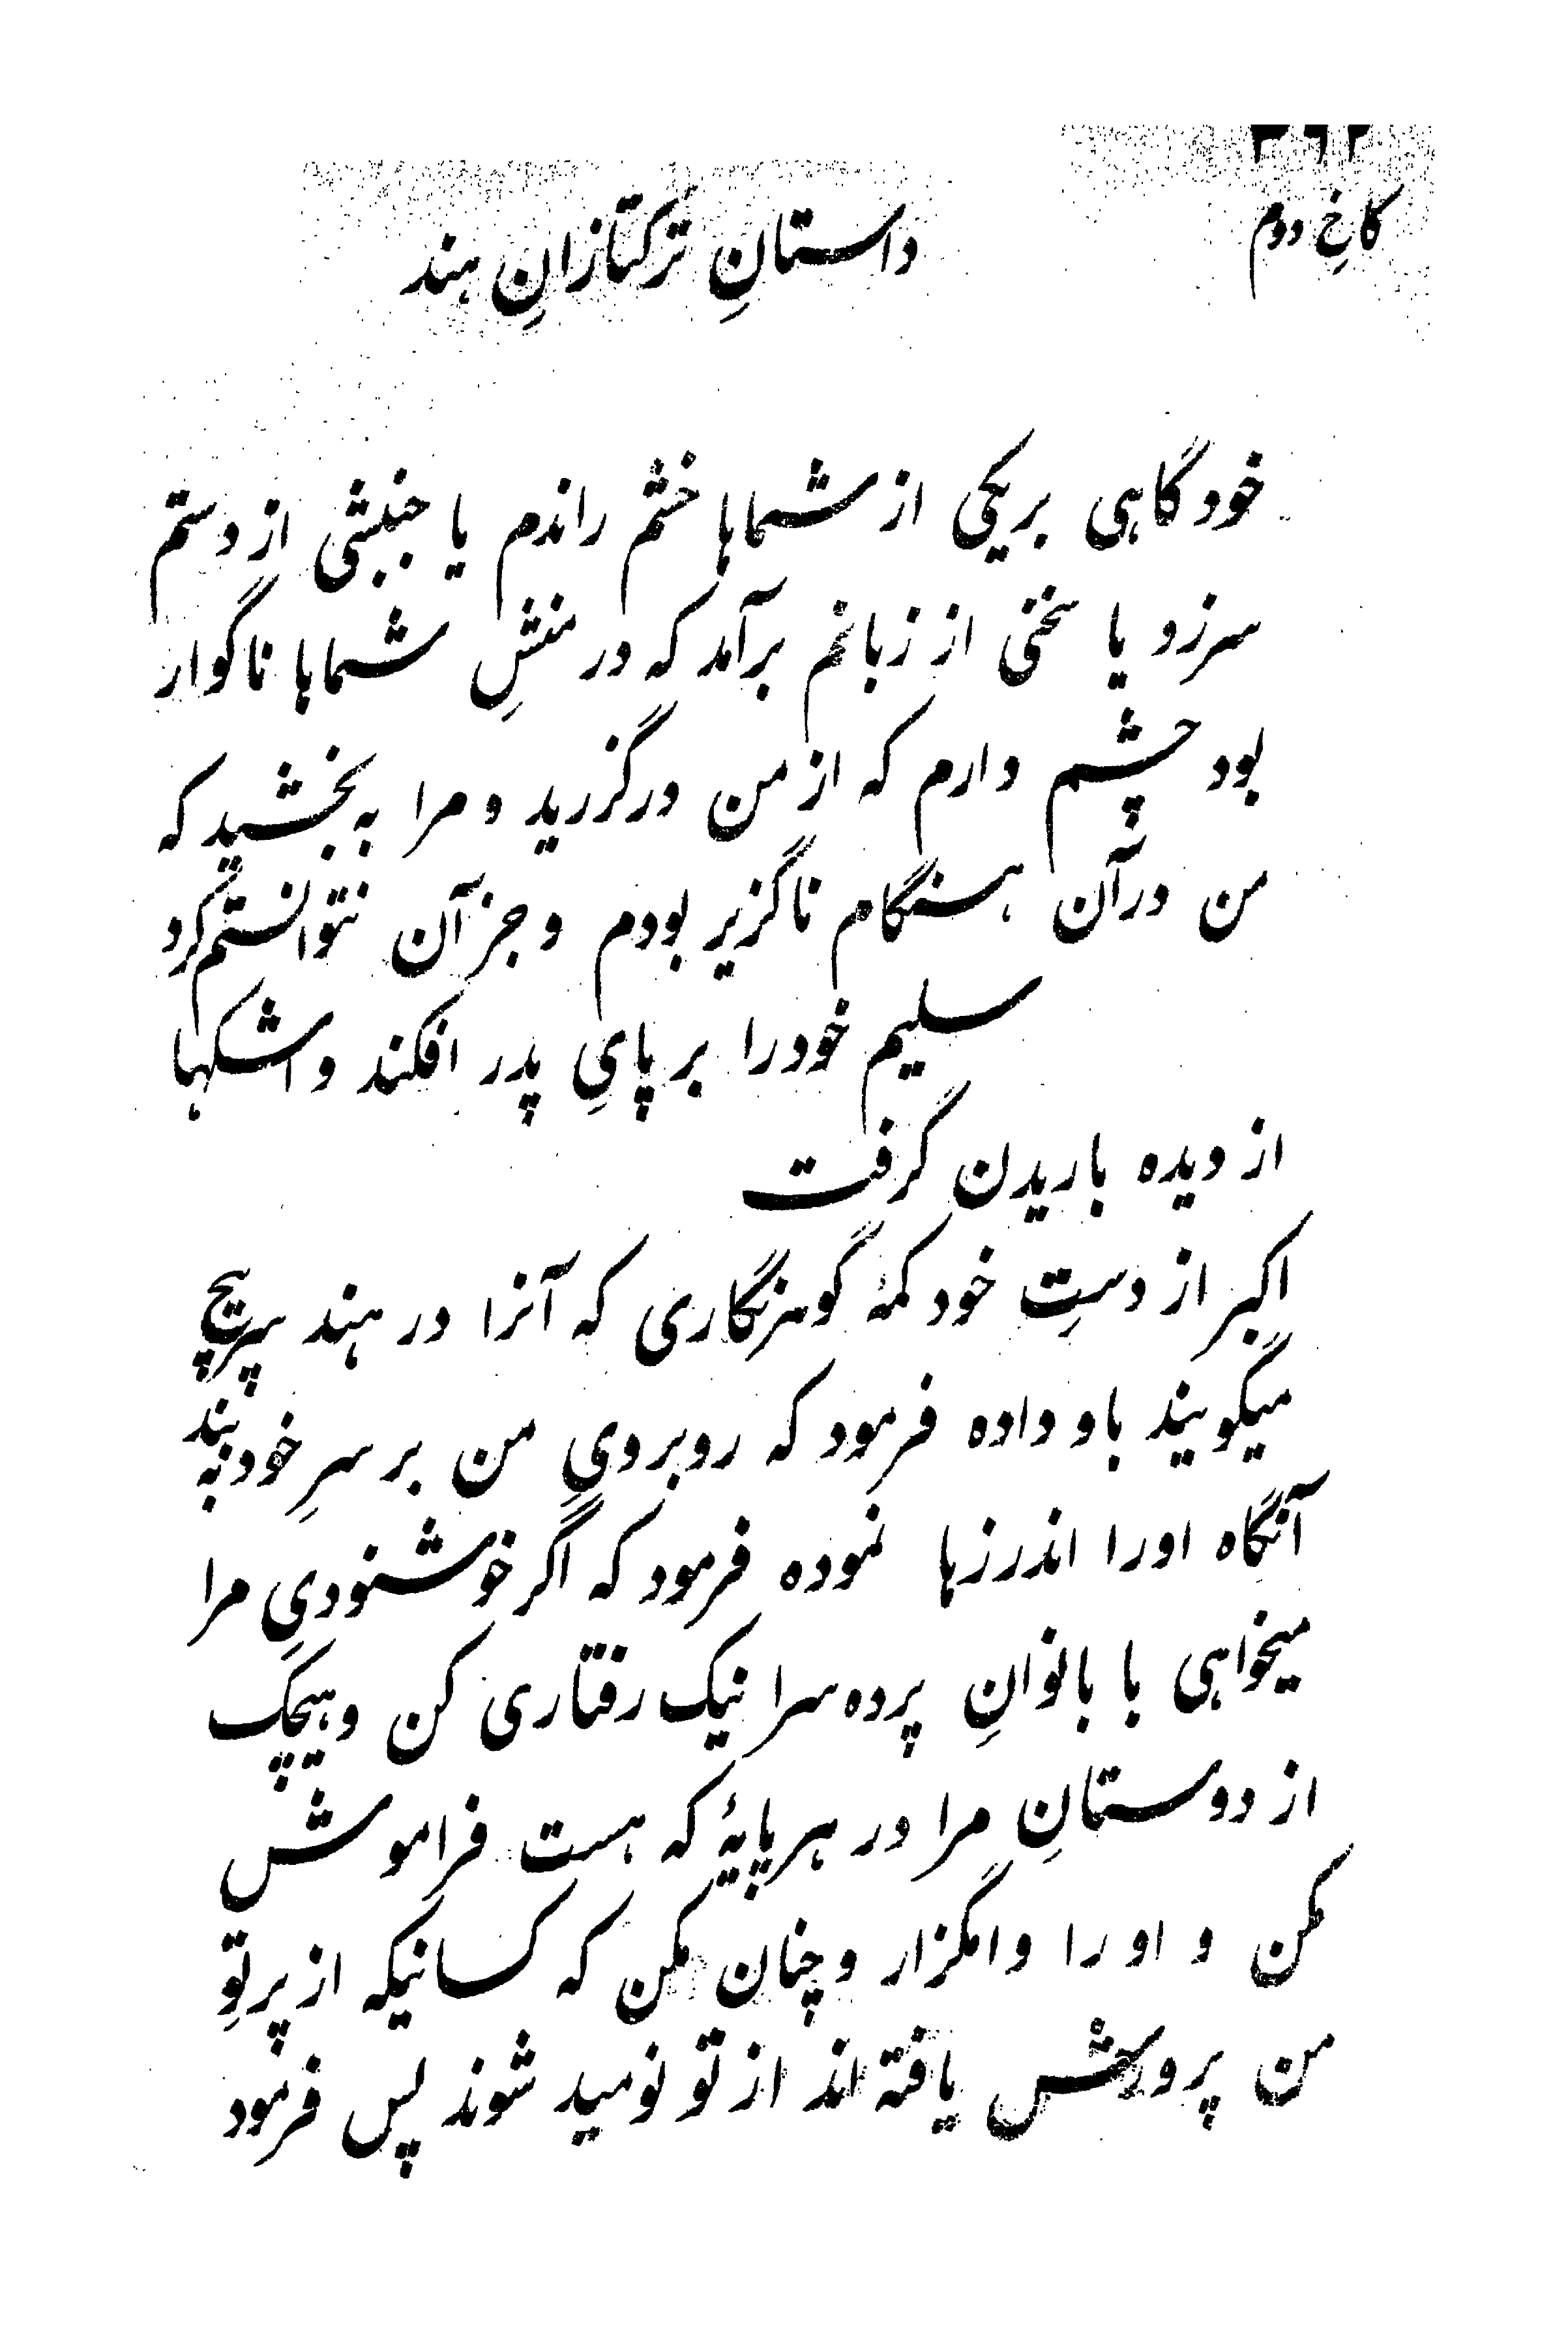 کاخِ دوم
داستانِ ترکتازانِ هند
خود گاهی بر یکی از شماها خشم راندم یا جنبشی از دستم
سرزد یا سخنی از زبانم برآمد که در منشِ شماها ناگوار
بود چشم دارم که از من درگزرید و مرا به بخشید که
من در آن هنگام ناگزیر بودم و جز آن نتوانستم کرد
سلیم خود را بر پایِ پدر افکند و اشکها
از دیده باریدن گرفت
اکبر از دستِ خود کمهٔ گوهرنگاری که آنرا در هند سرپیچ
میگویند باو داده فرمود که روبرویِ من بر سرِ خود به بند
آنگاه او را اندرزها نموده فرمود که اگر خوشنودیِ مرا
میخواهی با بانوانِ پرده سرا نیک رفتاری کن و هیچیک
از دوستانِ مرا در هر پایهٔ که هست فراموش
مکن و او را وامگزار و چنان مکن که کسانیکه از پرتوِ
من پرورش یافته اند از تو نومید شوند پس فرمود